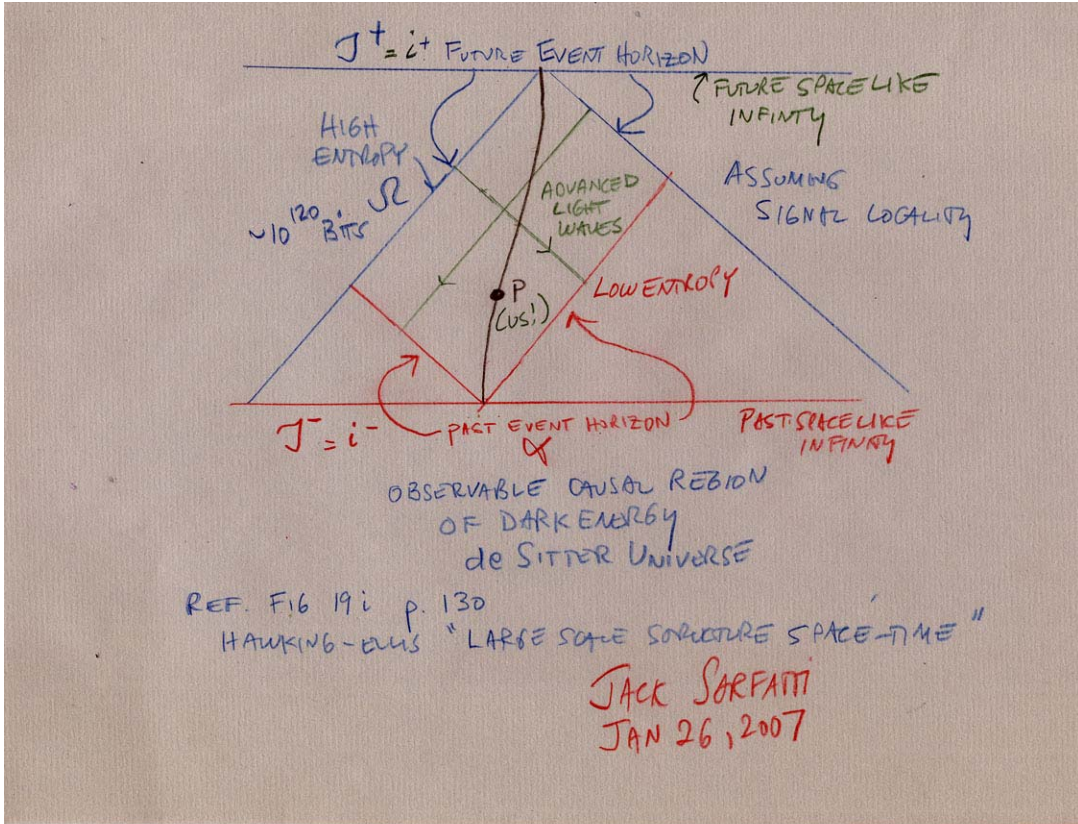 J⁺ = i⁺ FUTURE EVENT HORIZON
↑ FUTURE SPACE LIKE
INFINTY
HIGH
ENTROPY
~10¹²⁰ BITS Ω
ADVANCED
LIGHT
WAVES
ASSUMING
SIGNAL LOCALITY
P
(US!)
LOW ENTROPY
J⁻ = i⁻
PAST EVENT HORIZON
α
PAST SPACELIKE
INFINITY
OBSERVABLE CAUSAL REGION
OF DARK ENERGY
de SITTER UNIVERSE
REF. FIG 19 i p. 130
HAWKING-ELLIS "LARGE SCALE STRUCTURE SPACE-TIME"
JACK SARFATTI
JAN 26, 2007